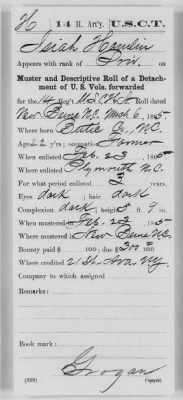 H 14 H. Art'y. U.S.C.T.
Isiah Hamlin
Appears with rank of Priv. on
Muster and Descriptive Roll of a Detach-
ment of U. S. Vols. forwarded
for the 14 Reg't U.S.C.H.A. Roll dated
New Berne N.C. Mch 6, 1865
Where born Co., N.C.
Age 22 y'rs; occupation Farmer
When enlisted Feb. 23, 1865
Where enlisted Plymouth N.C.
For what period enlisted 3 years.
Eyes dark; hair dark
Complexion dark; height 5 ft. 9 in.
When mustered in Feb. 23, 1865
Where mustered in New Berne N.C.
Bounty paid $ 100; due $ 300 00/100
Where credited N.Y.
Company to which assigned
Remarks:
Book mark:
Grogan
(339) Copyist.